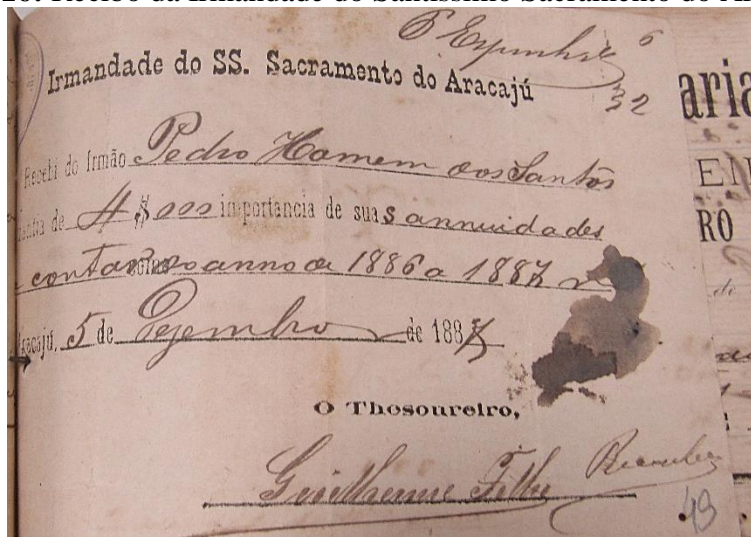 6
Irmandade do SS. Sacramento do Aracajú
32
Recebi do Irmão Pedro Homem dos Santos
quantia de 4$000 importancia de suas annuidades
a contar do anno de 1886 a 1887
Aracajú, 5 de Dezembro de 1887
O Thesoureiro,
Guilherme Filho
49
aria
EN
RO
de